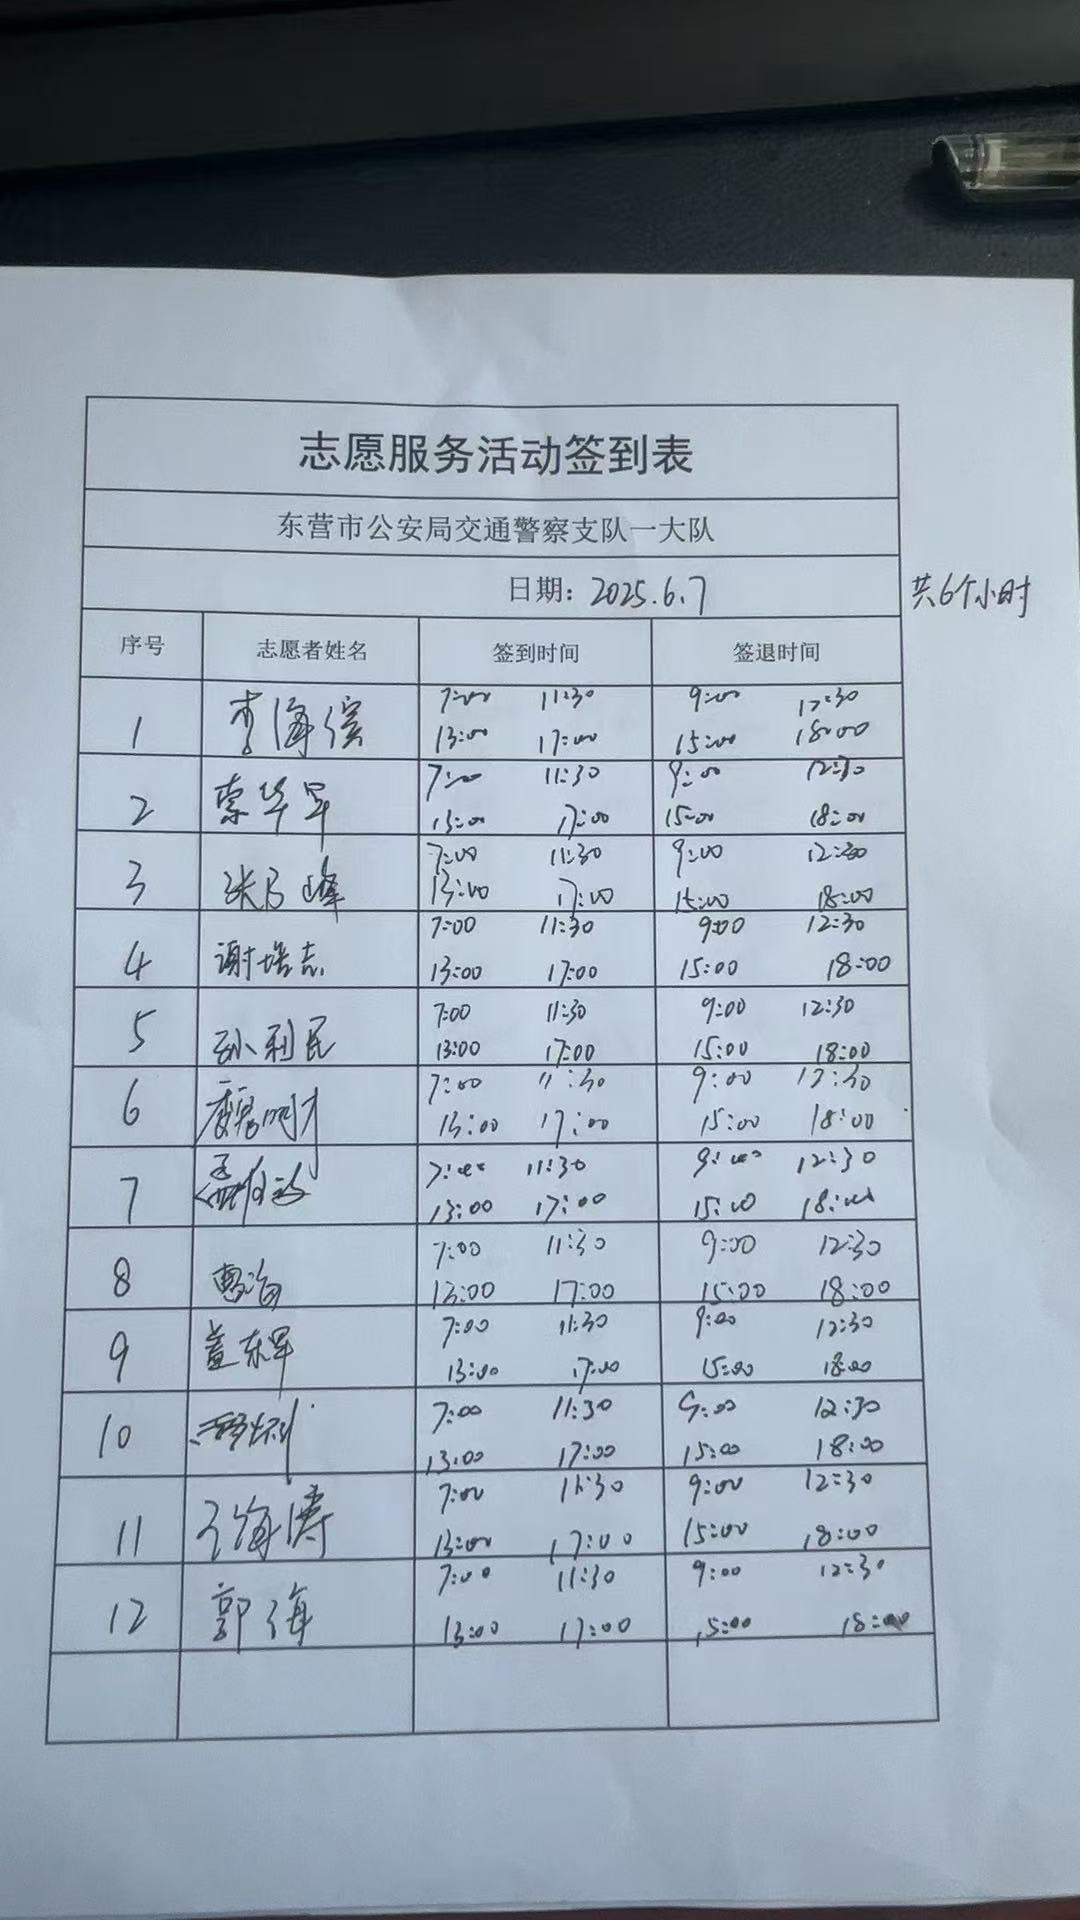 志愿服务活动签到表
东营市公安局交通警察支队一大队
日期：2025.6.7 共6个小时
序号 志愿者姓名 签到时间 签退时间
7:00 11:30 9:00 12:30
1 李海滨 13:00 17:00 15:00 18:00
7:00 11:30 9:00 12:30
2 索华军 13:00 17:00 15:00 18:00
7:00 11:30 9:00 12:30
3 张峰 13:00 17:00 15:00 18:00
7:00 11:30 9:00 12:30
4 谢培志 13:00 17:00 15:00 18:00
7:00 11:30 9:00 12:30
5 孙利民 13:00 17:00 15:00 18:00
7:00 11:30 9:00 12:30
6 13:00 17:00 15:00 18:00
7:00 11:30 9:00 12:30
7 孟 13:00 17:00 15:00 18:00
7:00 11:30 9:00 12:30
8 13:00 17:00 15:00 18:00
7:00 11:30 9:00 12:30
9 盖东军 13:00 17:00 15:00 18:00
7:00 11:30 9:00 12:30
10 13:00 17:00 15:00 18:00
7:00 11:30 9:00 12:30
11 海涛 13:00 17:00 15:00 18:00
7:00 11:30 9:00 12:30
12 郭海 13:00 17:00 15:00 18:00